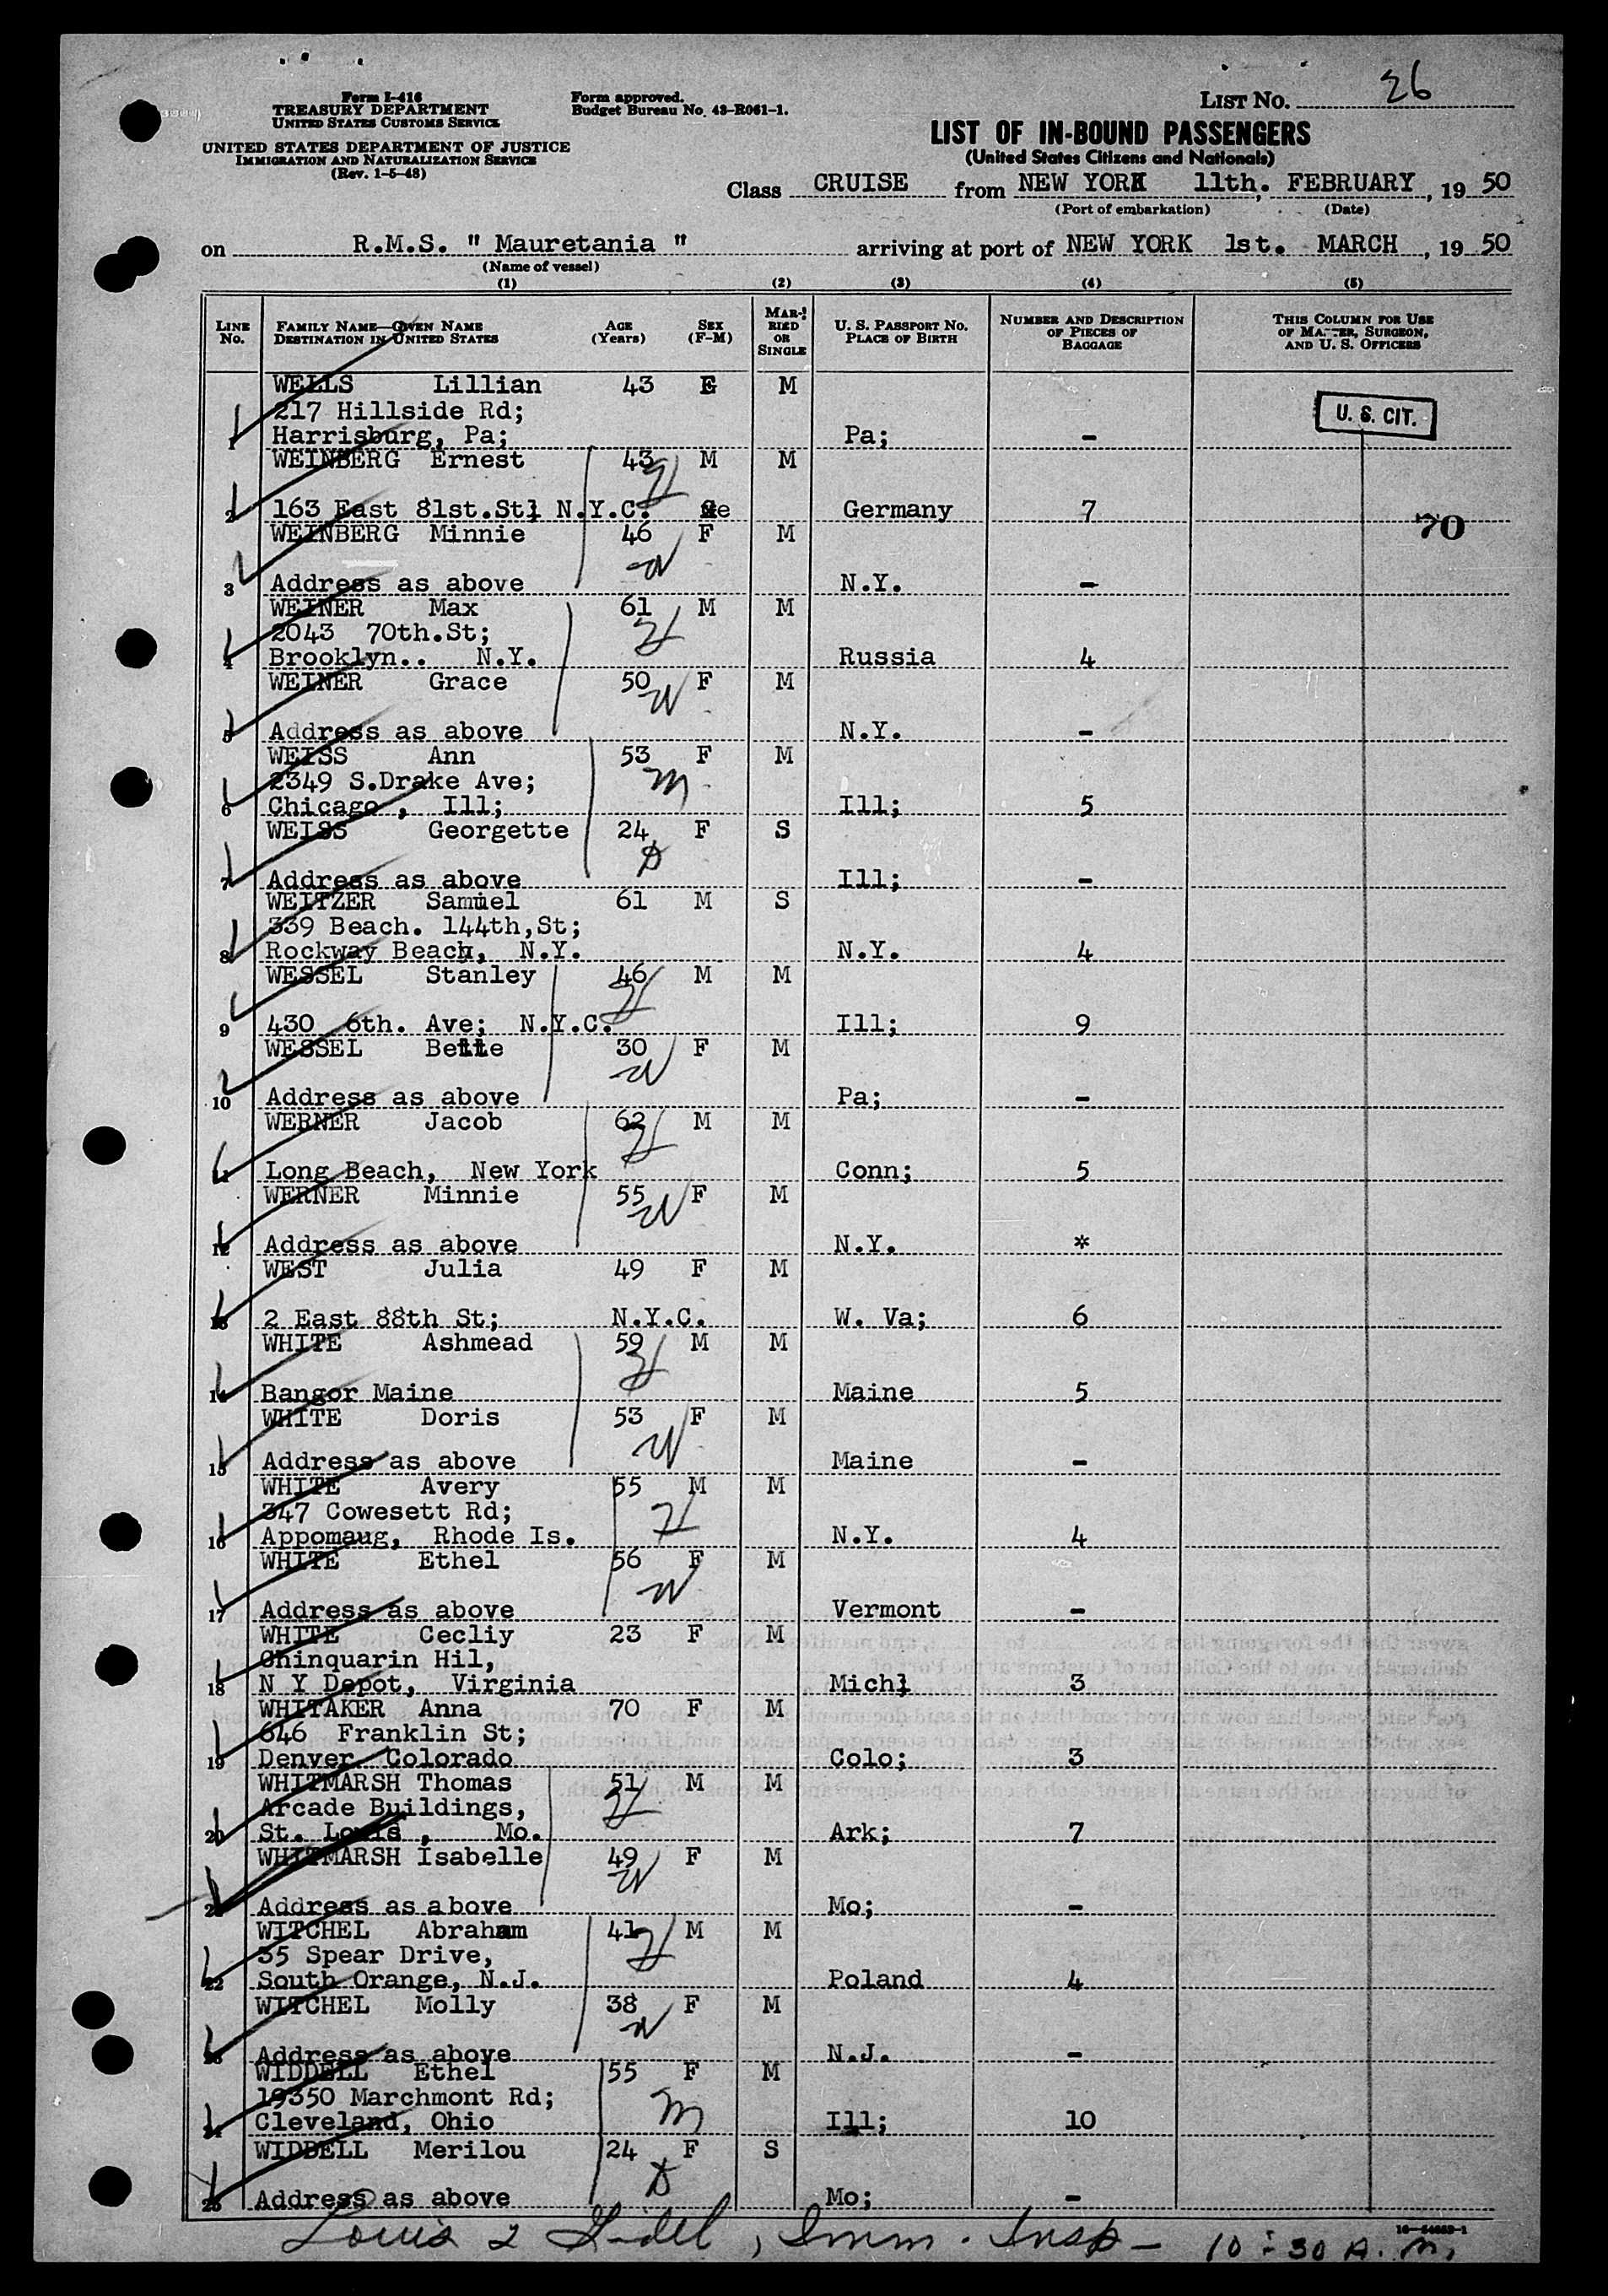 Form I-416
TREASURY DEPARTMENT
UNITED STATES CUSTOMS SERVICE
UNITED STATES DEPARTMENT OF JUSTICE
IMMIGRATION AND NATURALIZATION SERVICE
(Rev. 1-5-48)
Form approved.
Budget Bureau No. 43-R061-1.
LIST No. 26
LIST OF IN-BOUND PASSENGERS
(United States Citizens and Nationals)
Class CRUISE from NEW YORK 11th. FEBRUARY, 19 50
(Port of embarkation) (Date)
on R.M.S. " Mauretania " arriving at port of NEW YORK 1st. MARCH, 19 50
(Name of vessel)
(1) (2) (3) (4) (5)
LINE No. FAMILY NAME—GIVEN NAME DESTINATION IN UNITED STATES AGE (Years) SEX (F-M) MARRIED OR SINGLE U. S. PASSPORT No. PLACE OF BIRTH NUMBER AND DESCRIPTION OF PIECES OF BAGGAGE THIS COLUMN FOR USE OF MASTER, SURGEON, AND U. S. OFFICERS
WELLS Lillian 43 M
217 Hillside Rd; U. S. CIT.
1 Harrisburg, Pa; Pa; -
WEINBERG Ernest 43 M M
H
2 163 East 81st.St; N.Y.C. Germany 7
70
WEINBERG Minnie 46 F M
W
3 Address as above N.Y. -
WEINER Max 61 M M
2043 70th.St; H
4 Brooklyn.. N.Y. Russia 4
WEINER Grace 50 F M
W
5 Address as above N.Y. -
WEISS Ann 53 F M
2349 S.Drake Ave; M
6 Chicago , Ill; Ill; 5
WEISS Georgette 24 F S
D
7 Address as above Ill; -
WEITZER Samuel 61 M S
339 Beach. 144th,St;
8 Rockway Beach, N.Y. N.Y. 4
WESSEL Stanley 46 M M
H
9 430 6th. Ave; N.Y.C. Ill; 9
WESSEL Bette 30 F M
W
10 Address as above Pa; -
WERNER Jacob 62 M M
H
11 Long Beach, New York Conn; 5
WERNER Minnie 55 F M
W
12 Address as above N.Y. *
WEST Julia 49 F M
13 2 East 88th St; N.Y.C. W. Va; 6
WHITE Ashmead 59 M M
H
14 Bangor Maine Maine 5
WHITE Doris 53 F M
W
15 Address as above Maine -
WHITE Avery 55 M M
347 Cowesett Rd; H
16 Appomaug, Rhode Is. N.Y. 4
WHITE Ethel 56 F M
W
17 Address as above Vermont -
WHITE Cecliy 23 F M
Chinquarin Hil,
18 N Y Depot, Virginia Mich; 3
WHITAKER Anna 70 F M
646 Franklin St;
19 Denver Colorado Colo; 3
WHITMARSH Thomas 51 M M
Arcade Buildings, H
20 St. Louis , Mo. Ark; 7
WHITMARSH Isabelle 49 F M
W
21 Address as above Mo; -
WITCHEL Abraham 41 M M
35 Spear Drive, H
22 South Orange, N.J. Poland 4
WITCHEL Molly 38 F M
W
23 Address as above N.J. -
WIDDELL Ethel 55 F M
19350 Marchmont Rd; M
24 Cleveland, Ohio Ill; 10
WIDDELL Merilou 24 F S
D
25 Address as above Mo; -
Louis , Imm. Insp - 10:30 A. M.